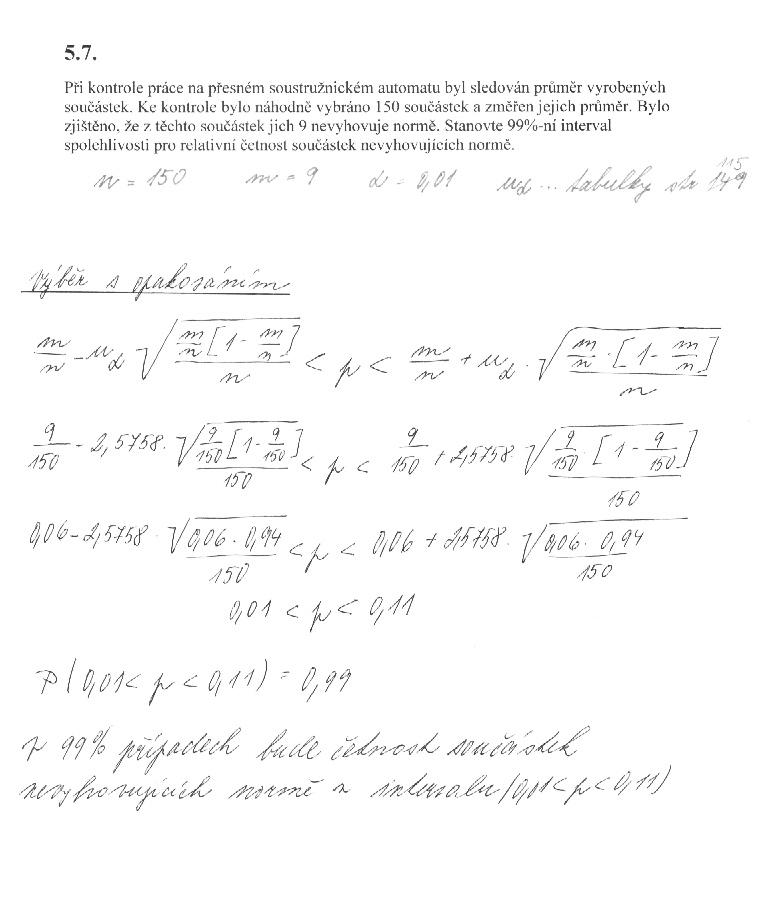 5.7.
Při kontrole práce na přesném soustružnickém automatu byl sledován průměr vyrobených
součástek. Ke kontrole bylo náhodně vybráno 150 součástek a změřen jejich průměr. Bylo
zjištěno, že z těchto součástek jich 9 nevyhovuje normě. Stanovte 99%-ní interval
spolehlivosti pro relativní četnost součástek nevyhovujících normě.
n = 150 m = 9 α = 0,01 u_α ... tabulky str 149 115
Výběr s opakováním
m/n - u_α √(m/n [1 - m/n] / n) < p < m/n + u_α · √(m/n · [1 - m/n] / n)
9/150 - 2,5758 · √(9/150 [1 - 9/150] / 150) < p < 9/150 + 2,5758 · √(9/150 · [1 - 9/150] / 150)
0,06 - 2,5758 · √(0,06 · 0,94 / 150) < p < 0,06 + 2,5758 · √(0,06 · 0,94 / 150)
0,01 < p < 0,11
P(0,01 < p < 0,11) = 0,99
V 99% případech bude četnost součástek
nevyhovujících normě v intervalu (0,01 < p < 0,11)